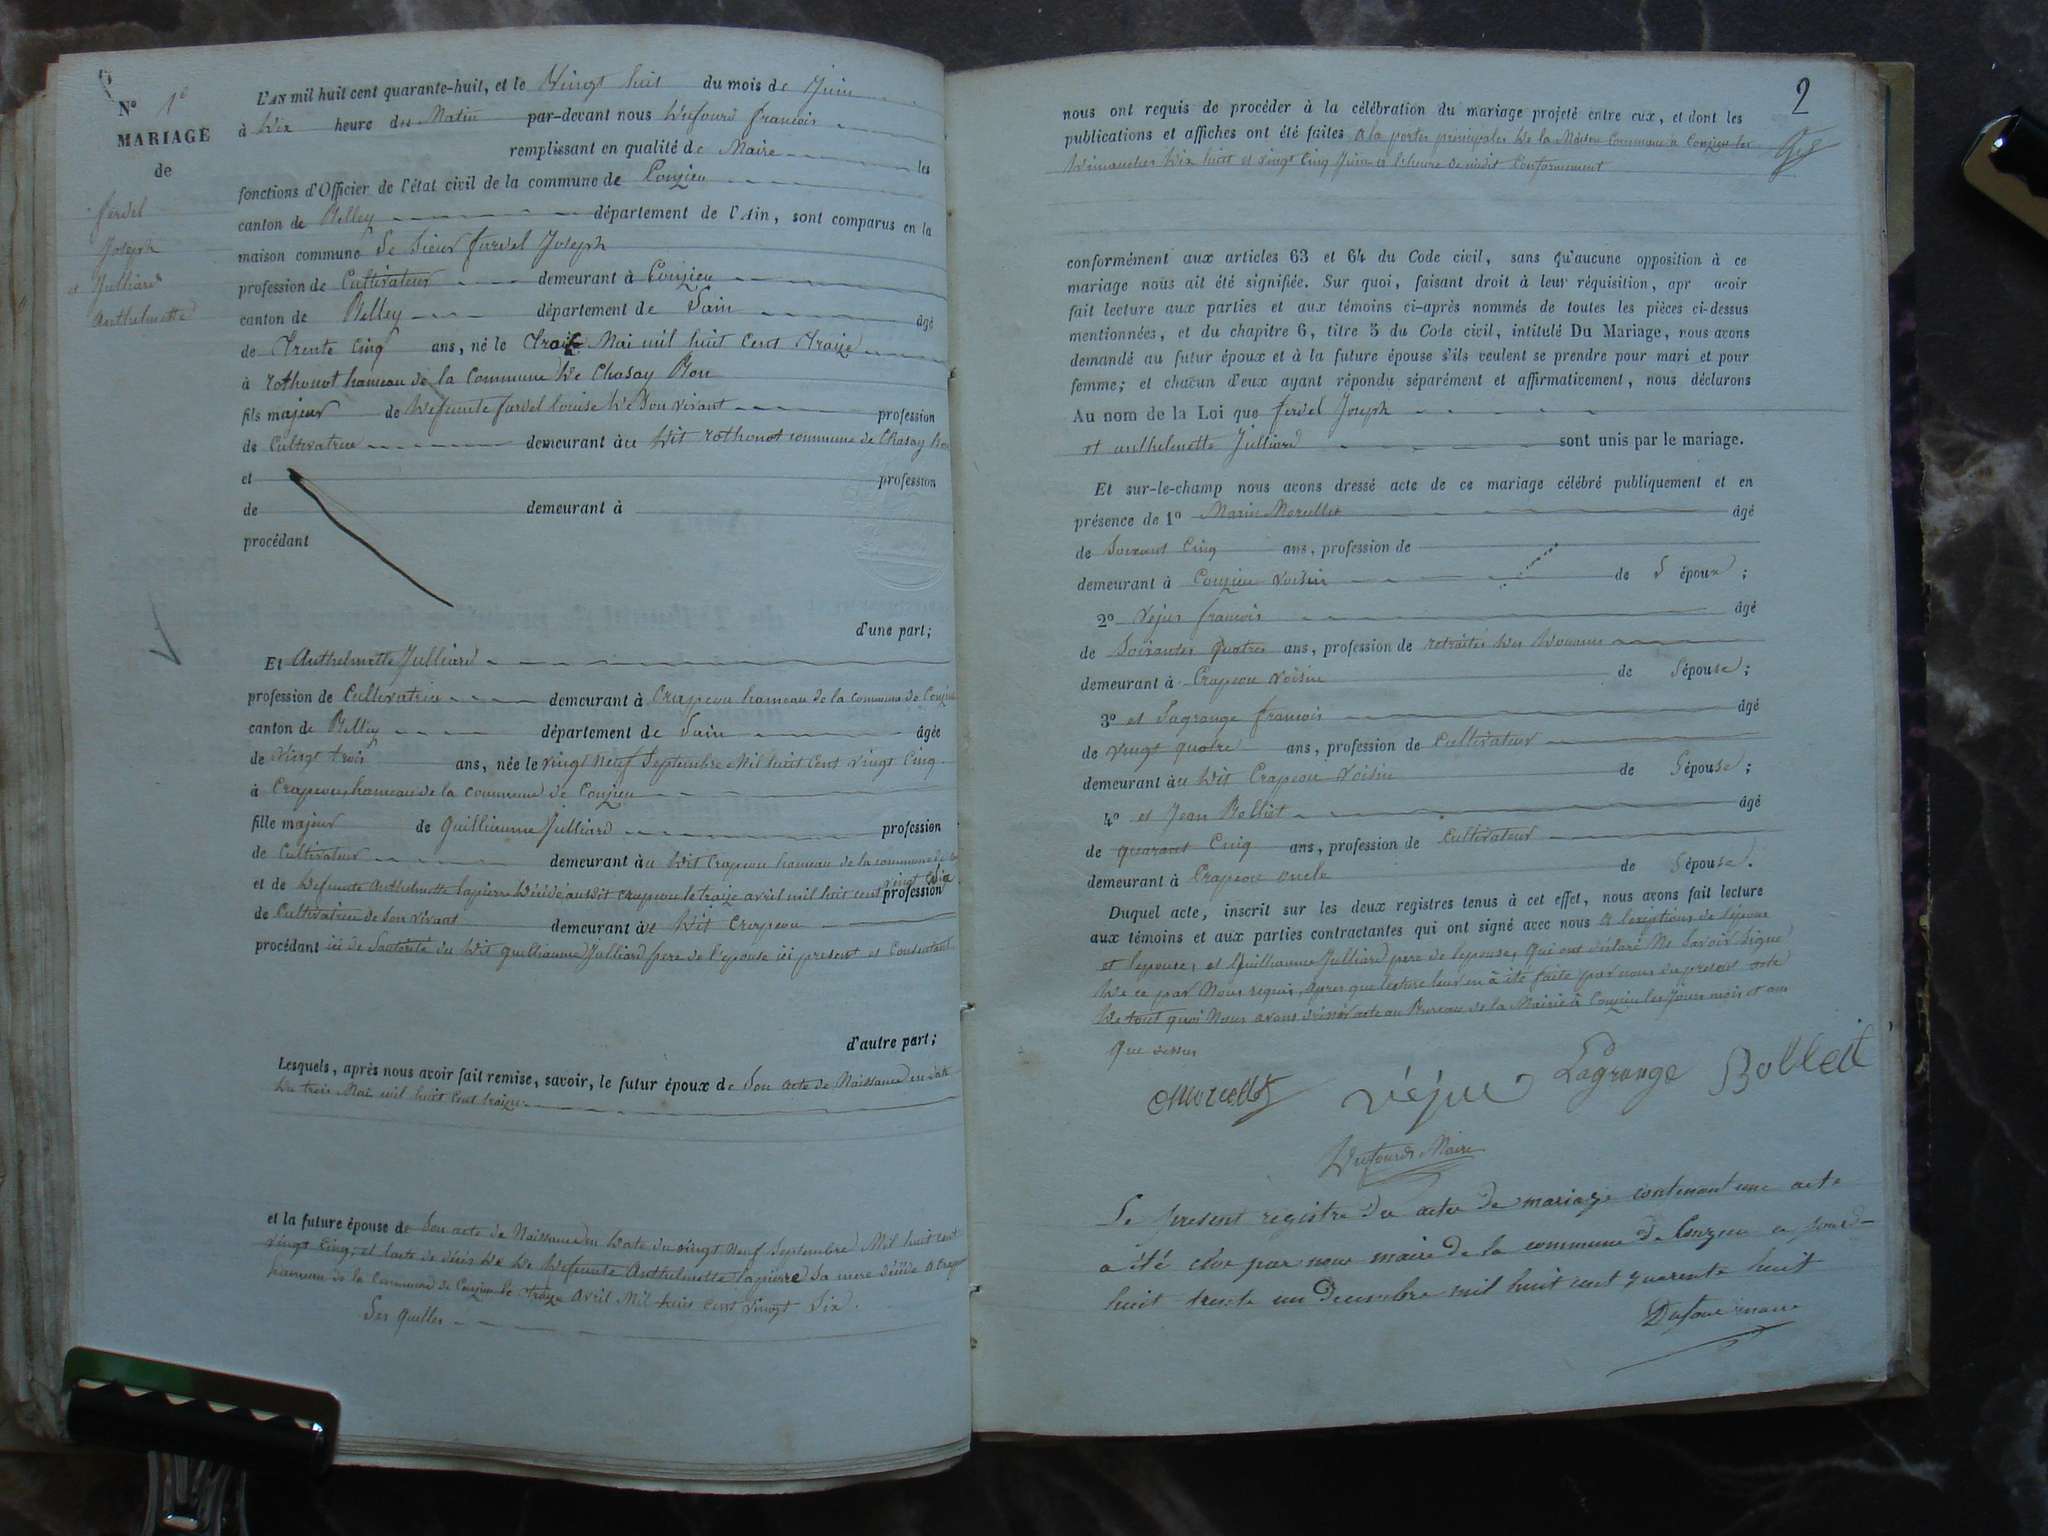 N° 1er
MARIAGE
de
ferdel
Joseph
et Julliard
Anthelmette
L'AN mil huit cent quarante-huit, et le Vingt huit du mois de Juin
à Dix heure du Matin par-devant nous Dufourd francois
remplissant en qualité de Maire les
fonctions d'Officier de l'état civil de la commune de Conzieu
canton de Belley département de l'Ain, sont comparus en la
maison commune Le Sieur ferdel Joseph
profession de Cultivateur demeurant à Conzieu
canton de Belley département de Lain âgé
de Trente Cinq ans, né le Trois Mai mil huit Cent Traize
à rothonot hameau de la Commune De Chasay Bon
fils majeur de Defuncte ferdel louise De Son vivant profession
de Cultivatrice demeurant àu Dit rothonot commune de Chasay Bon
et profession
de demeurant à
procédant
d'une part;
Et Anthelmette Julliard
profession de Cultivatrice demeurant à Crapeou hameau de la commune de Conzieu
canton de Belley département de Lain âgée
de Vingt trois ans, née le vingt Neuf Septembre Mil huit Cent Vingt Cinq
à Crapeou hameau de la commune de Conzieu
fille majeur de Guilliaume Julliard profession
de Cultivateur demeurant àu Dit Crapeou hameau de la commune de
et de Defuncte Anthelmette lapierre Décédé audit crapeou le traize avril mil huit cent vingt Six profession
de Cultivatrice de Son vivant demeurant àu Dit Crapeou
procédant ici de Lautorité du Dit Guilliaume Julliard pere de l'epouse ici present et Consentant
d'autre part;
Lesquels, après nous avoir fait remise, savoir, le futur époux de Son acte de Naissance en date
Du trois Mai mil huit Cent traize
et la future épouse de Son acte de Naissance en Date du vingt Neuf Septembre Mil huit cent
vingt Cinq, et lacte de décès De De Defuncte Anthelmette lapierre Sa mere décédé a Crapeou
hameau de la Commune de Conzieu le traize Avril Mil huit Cent vingt Six.
Les quelles
2
nous ont requis de procéder à la célébration du mariage projeté entre eux, et dont les
publications et affiches ont été faites a la portes principales De la Maison Commune à Conzieu les
Dimanches Dix huit et vingt Cinq Juin à l'heure de midit Conformement
conformément aux articles 63 et 64 du Code civil, sans qu'aucune opposition à ce
mariage nous ait été signifiée. Sur quoi, faisant droit à leur réquisition, apr avoir
fait lecture aux parties et aux témoins ci-après nommés de toutes les pièces ci-dessus
mentionnées, et du chapitre 6, titre 5 du Code civil, intitulé Du Mariage, nous avons
demandé au futur époux et à la future épouse s'ils veulent se prendre pour mari et pour
femme; et chacun d'eux ayant répondu séparément et affirmativement, nous déclarons
Au nom de la Loi que ferdel Joseph
et anthelmette Julliard sont unis par le mariage.
Et sur-le-champ nous avons dressé acte de ce mariage célébré publiquement et en
présence de 1° Marin Morcellet âgé
de Soixant Cinq ans, profession de
demeurant à Conzieu voisin de L époux;
2° Vejus francois âgé
de Soixantes Quatres ans, profession de retraités Des Douanes
demeurant à Crapeou Voisin de Lépouse;
3° et Lagrange francois âgé
de vingt quatre ans, profession de Cultivateur
demeurant àu Dit Crapeou Voisin de Lépouse;
4° et Jean Bolliet âgé
de quarant Cinq ans, profession de Cultivateur
demeurant à Crapeou oncle de Lépouse.
Duquel acte, inscrit sur les deux registres tenus à cet effet, nous avons fait lecture
aux témoins et aux parties contractantes qui ont signé avec nous A lexeptions de lépoux
et lepouse, et Guilliaume Julliard pere de lepouse, Qui ont déclaré Ne Savoir Signé
De ce par Nous requis, apres que lecture leur en à été faite par nous du present acte
De tout quoi Nous avons dréssér acte au Bureau de la Mairie à Conzieu les Jours mois et an
Que dessus
Morcellet Véjus Lagrange Bolleit
Dufourd Maire
Le present registre des actes de mariage contenant une acte
a été clos par nous maire de la commune de Conzieu ce jourd-
huit trente un Decembre mil huit cent quarente huit
Dufour maire